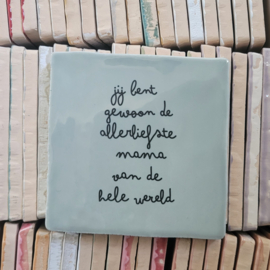 jij bent
gewoon de
allerliefste
mama
van de
hele wereld